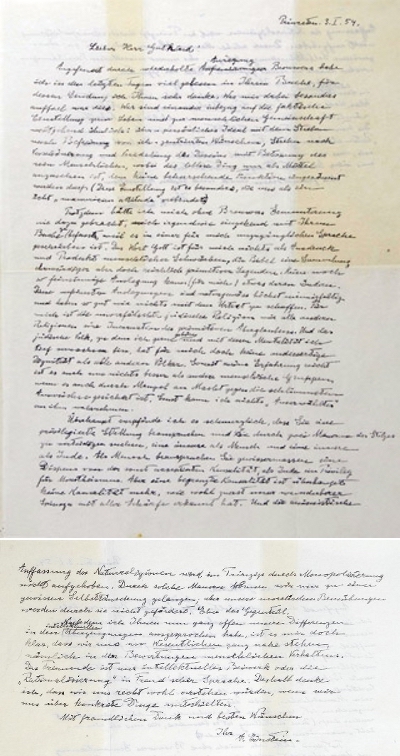 Princeton. 3. I. 54.
Lieber Herr Gutkind!
Angefeuert durch wiederholte Anregung Brouwers habe
ich in den letzten Tagen viel gelesen in Ihrem Buche, für
dessen Sendung ich Ihnen sehr danke. Was mir dabei besonders
auffiel war dies. Wir sind einander inbezug auf die faktische
Einstellung zum Leben und zur menschlichen Gemeinschaft
weitgehend ähnlich: persönliches Ideal mit dem Streben
nach Befreiung von ich-zentrierten Wünschen, Streben nach
Verschönerung und Veredelung des Daseins mit Betonung des
rein Menschlichen, wobei das leblose Ding nur als Mittel
anzusehen ist, dem keine beherrschende Funktion eingeräumt
werden darf. (Diese Einstellung ist es besonders, die uns als ein
echt „unamerican attitude" verbindet.)
Trotzdem hätte ich mich ohne Brouwers Ermunterung
nie dazu gebracht, mich eingehend mit Ihrem
Buch zu befassen, weil es in einer für mich unzugänglichen Sprache
geschrieben ist. Das Wort Gott ist für mich nichts als Ausdruck
und Produkt menschlicher Schwächen, die Bibel eine Sammlung
ehrwürdiger aber doch reichlich primitiver Legenden. Keine noch
so feinsinnige Auslegung kann (für mich) etwas daran ändern.
Diese verfeinerten Auslegungen sind naturgemäss höchst mannigfaltig
und haben so gut wie nichts mit dem Urtext zu schaffen. Für
mich ist die unverfälschte jüdische Religion wie alle anderen
Religionen eine Incarnation des primitiven Aberglaubens. Und das
jüdische Volk, zu dem ich gerne gehöre und mit dessen Mentalität ich
tief verwachsen bin, hat für mich doch keine andersartige
Dignität als alle anderen Völker. Soweit meine Erfahrung reicht
ist es auch um nichts besser als andere menschliche Gruppen
wenn es auch durch Mangel an Macht gegen die schlimmsten
Auswüchse gesichert ist. Sonst kann ich nichts „Auserwähltes"
an ihm wahrnehmen.
Überhaupt empfinde ich es schmerzlich, dass Sie eine
privilegierte Stellung beanspruchen und sie durch zwei Mauern des Stolzes
zu verteidigen suchen, eine äussere als Mensch und eine innere
als Jude. Als Mensch beanspruchen Sie gewissermassen einen
Dispens von der sonst acceptierten Kausalität, als Jude ein Privileg
für Monotheismus. Aber eine begrenzte Kausalität ist überhaupt
keine Kausalität mehr, wie wohl zuerst unser wunderbarer
Spinoza mit aller Schärfe erkannt hat. Und die animistische
Auffassung der Naturreligionen wird im Prinzip durch Monopolisierung
nicht aufgehoben. Durch solche Mauern können wir nur zu einer
gewissen Selbsttäuschung gelangen, aber unsere moralischen Bemühungen
werden durch sie nicht gefördert. Eher das Gegenteil.
Nachdem ich Ihnen nun ganz offen unsere Differenzen
in den intellektuellen Überzeugungen ausgesprochen habe, ist es mir doch
klar, dass wir uns im Wesentlichen ganz nahe stehen,
nämlich in den Bewertungen menschlichen Verhaltens.
Das Trennende ist nur intellektuelles Beiwerk oder die
„Rationalisierung" in Freud'scher Sprache. Deshalb denke
ich, dass wir uns recht wohl verstehen würden, wenn wir
uns über konkrete Dinge unterhielten.
Mit freundlichem Dank und besten Wünschen
Ihr A. Einstein.